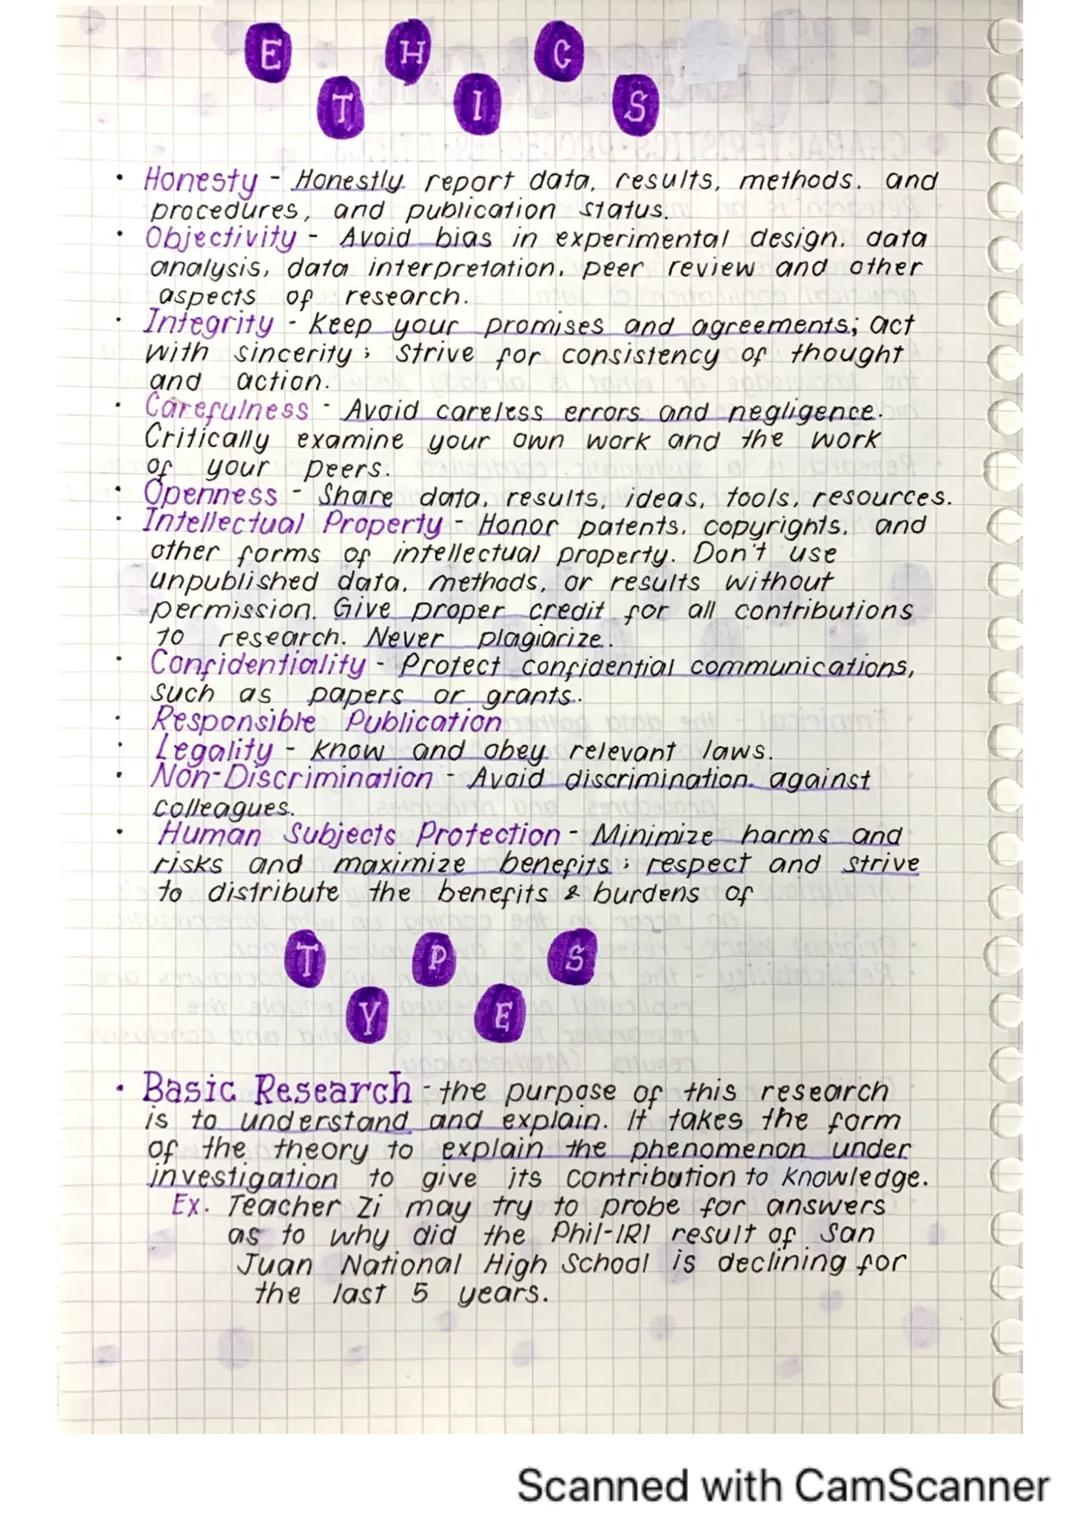 ETHICS
• Honesty - Honestly report data, results, methods. and
procedures, and publication status.
• Objectivity - Avoid bias in experimental design. data
analysis, data interpretation, peer review and other
aspects of research.
• Integrity - Keep your promises and agreements; act
with sincerity; strive for consistency of thought
and action.
• Carefulness - Avoid careless errors and negligence.
Critically examine your own work and the work
of your peers.
• Openness - Share data, results, ideas, tools, resources.
• Intellectual Property - Honor patents, copyrights, and
other forms of intellectual property. Don't use
unpublished data, methods, or results without
permission. Give proper credit for all contributions
to research. Never plagiarize.
• Confidentiality - Protect confidential communications,
such as papers or grants.
• Responsible Publication
• Legality - Know and obey relevant laws.
• Non-Discrimination - Avoid discrimination against
colleagues.
• Human Subjects Protection - Minimize harms and
risks and maximize benefits; respect and strive
to distribute the benefits & burdens of
TYPES
• Basic Research - the purpose of this research
is to understand and explain. It takes the form
of the theory to explain the phenomenon under
investigation to give its contribution to knowledge.
Ex. Teacher Zi may try to probe for answers
as to why did the Phil-IRI result of San
Juan National High School is declining for
the last 5 years.
Scanned with CamScanner